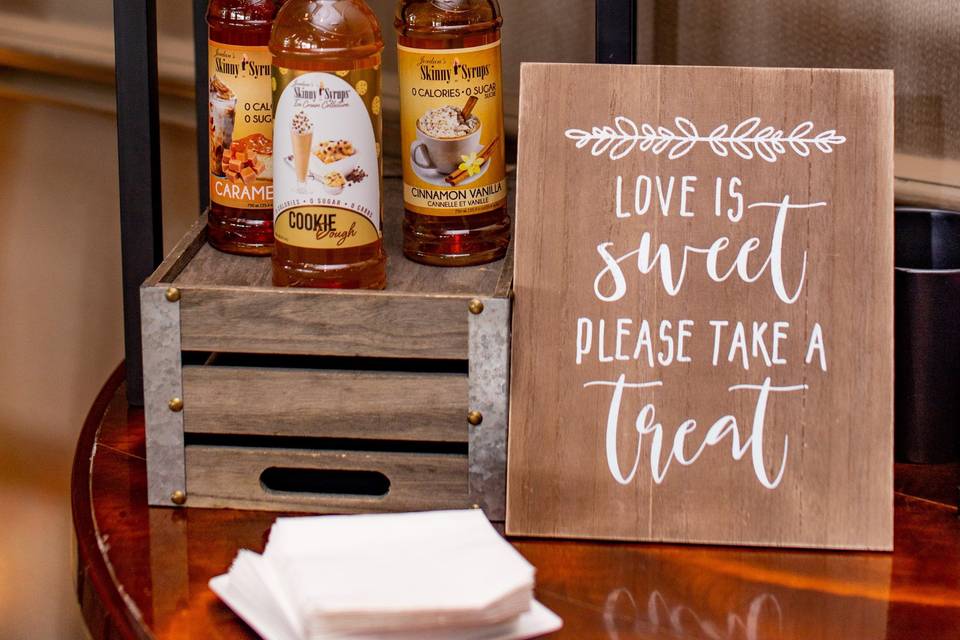 Jordan's
Skinny Syru
0 CAL
0 SUG
CARAME
Jordan's
Skinny Syrups
Ice Cream Collection
CALORIES • 0 SUGAR • 0 CARBS
COOKIE
Dough
Jordan's
Skinny Syrups
0 CALORIES • 0 SUGAR
SUCRE
CINNAMON VANILLA
CANNELLE ET VANILLE
LOVE IS
sweet
PLEASE TAKE A
treat